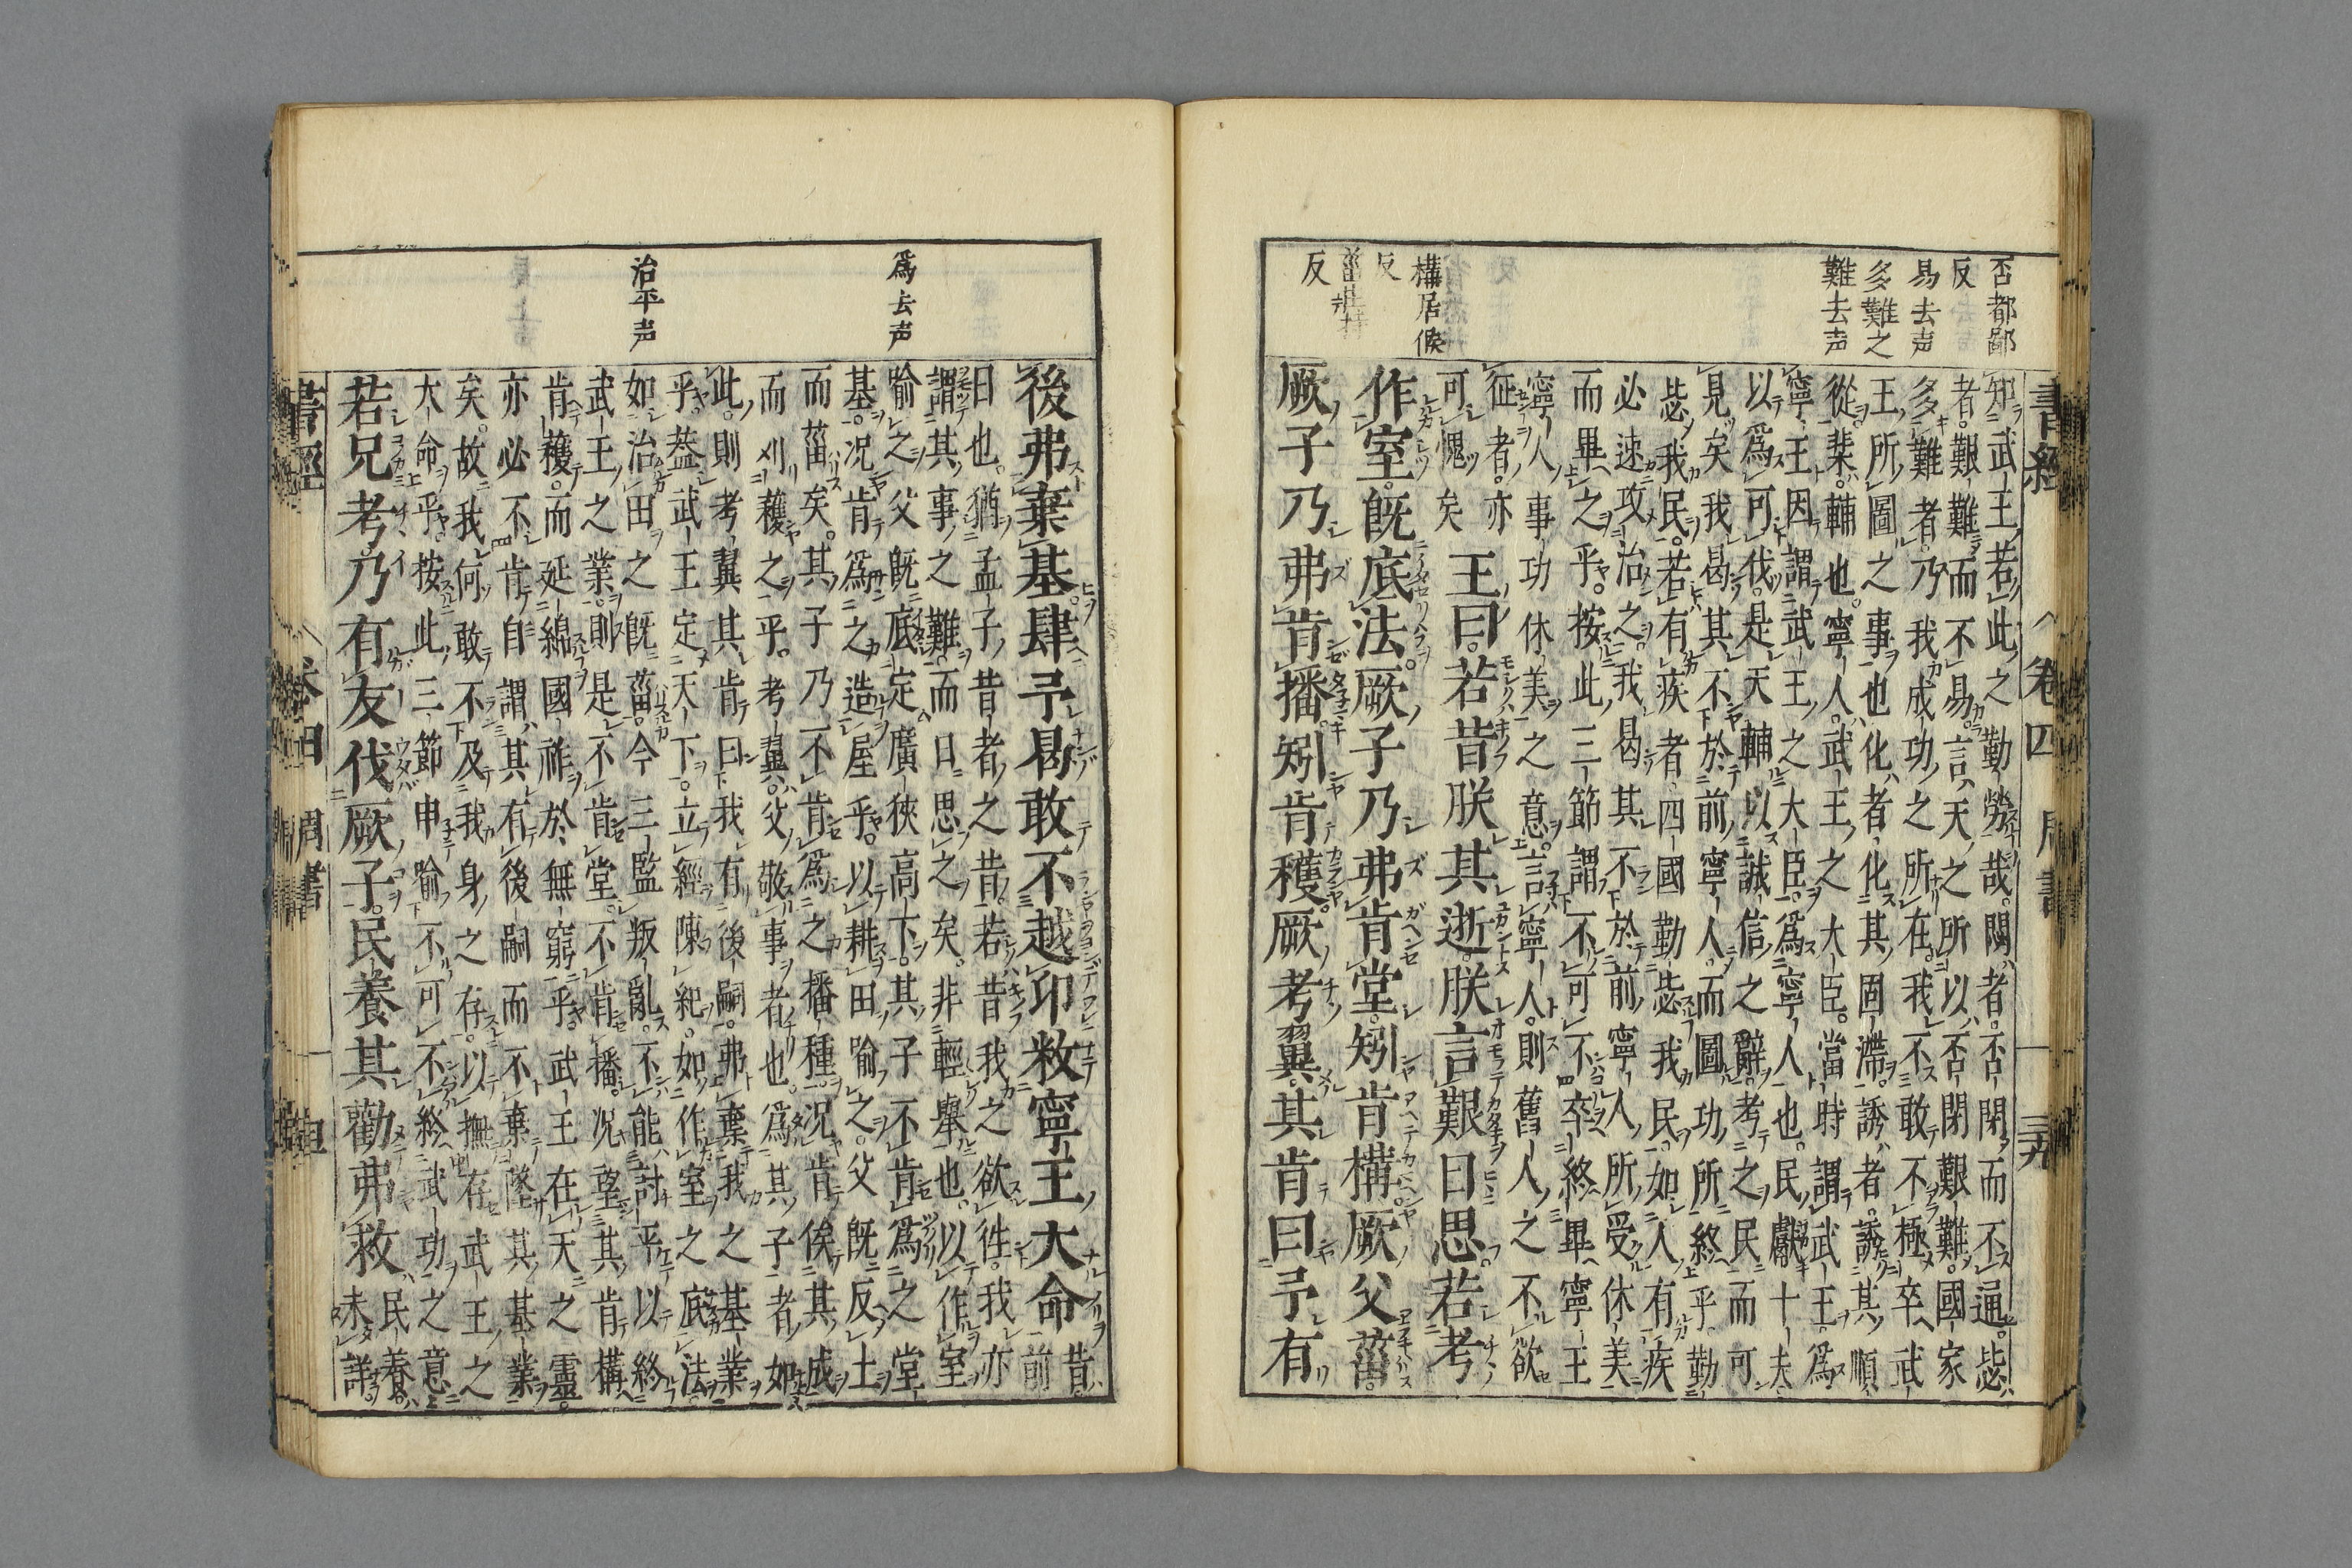 否都鄙
反
易去声
多難之
難去声
構居候
反
反
書經
卷四
周書
知武王若此之勤勞哉閟者否閉而不通毖
者艱難而不易言天之所以否閉艱難國家
多難者乃我成功之所在我不敢不極卒武
王所圖之事也化者化其固滯誘者誘其順
從棐輔也寧人武王之大臣當時謂武王爲
寧王因謂武王之大臣爲寧人也民獻十夫
以爲可伐是天輔以誠信之辭考之民而可
見矣我曷其不於前寧人而圖功所終乎勤
毖我民若有疾者四國勤毖我民如人有疾
必速攻治之我曷其不於前寧人所受休美
而畢之乎按此三節謂不可不卒終畢寧王
寧人事功休美之意言寧人則舊人之不欲
征者亦
可愧矣
王曰若昔朕其逝朕言艱日思若考
作室既底法厥子乃弗肯堂矧肯構厥父菑
厥子乃弗肯播矧肯穫厥考翼其肯曰予有
爲去声
治平声
後弗棄基肆予曷敢不越卬敉寧王大命
昔前
日也猶孟子昔者之昔若昔我之欲徃我亦
謂其事之難而日思之矣非輕舉也以作室
喻之父既底定廣狹高下其子不肯爲之堂
基况肯爲之造屋乎以耕田喻之父既反土
而菑矣其子乃不肯爲之播種况肯俟其成
而刈穫之乎考翼父敬事者也爲其子者如
此則考翼其肯曰我有後嗣弗棄我之基業
乎蓋武王定天下立經陳紀如作室之底法
如治田之既菑今三監叛亂不能討平以終
武王之業則是不肯堂不肯播况望其肯構
肯穫而延綿國祚於無窮乎武王在天之靈
亦必不肯自謂其有後嗣而不棄墜其基業
矣故我何敢不及我身之存以撫存武王之
大命乎按此三節申喻不可不終武功之意
若兄考乃有友伐厥子民養其勸弗救
民養
未詳
書經
周書